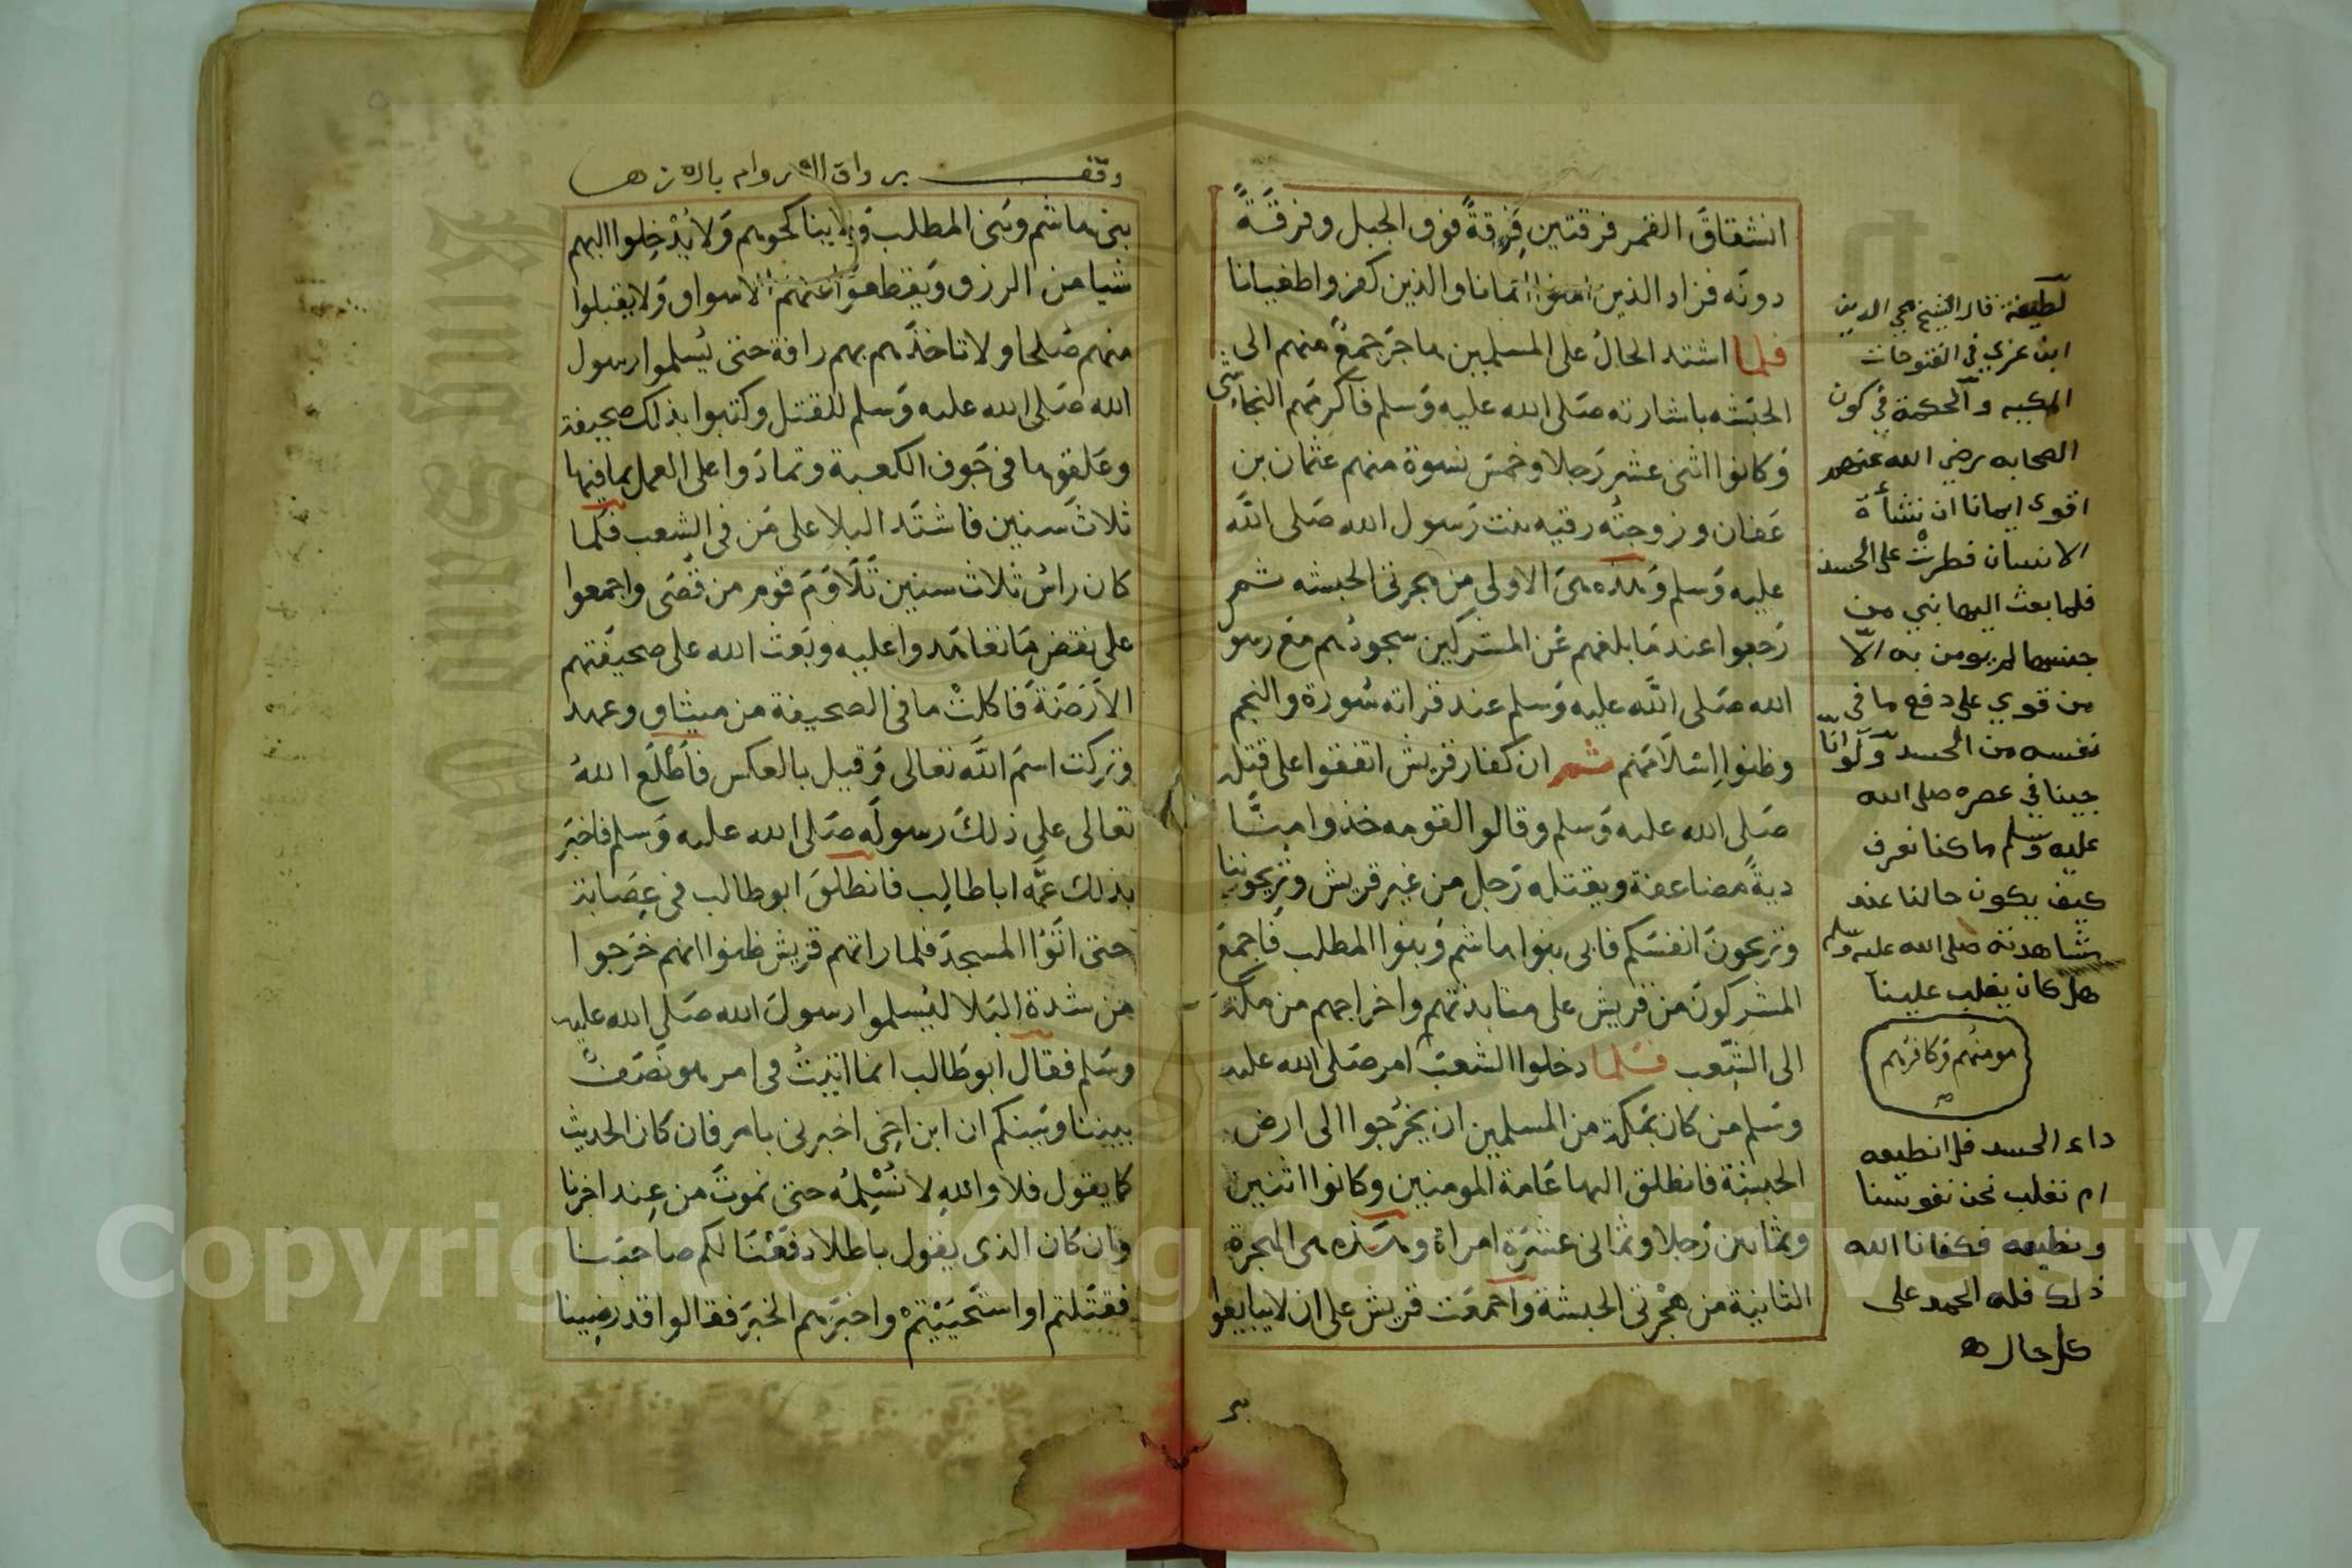 انشقاقَ القمر فرقتين فِرقةً فوق الجبل وفرقَةً
دونَه فزاد الذين امنوا ايمانا والذين كفروا طغيانا
فلما اشتد الحالُ على المسلمين هاجَرَ جمعٌ منهم الى
الحبَشه باشارته صَلى الله عليه وَسلم فاَكرمَهم النجاشى
وَكانوا اثنى عشر رَجلا وخمسَ نسوة منهم عثمان بن
عَفان وزوجتُه رقيه بنت رَسول الله صَلى الله
عليه وَسلم وَهذه هىَ الاولى من هجرتى الحبشه ثم
رَجعوا عند مَا بلغهم عَن المشركين سجودُهم مَع رسو
الله صَلى اللَّه عليه وَسلم عند قراته سُورة والنجم
وظنوا اِسْلاَمَهُم ثم ان كفار قريش اتفقوا على قتله
صَلى الله عليه وَسلم وقالوا لقومه خذوا منَّا
ديةً مضاعفة ويقتله رَجل من غير قريش وتريحوننا
وتريحونَ انفسَكم فابى بنوا هاشم وَبنوا المطلب فَاجمعَ
المشركونَ من قريش على منابذتهم واخراجهم من مكَّة
الى الشِّعب فلما دخلوا الشعبَ امر صَلى الله عليه
وسَلم من كان بمَكة من المسلمين ان يخرُجوا الى ارض
الحبشة فانطلق اليها عَامة المومنين وكانوا اثنين
وثمانين رَجلا وثمانى عشرَة امراة وهَذه هى الهجرة
الثانية من هجْرتى الحبشة واجمعَت قريش على ان لا يبايعوا
لطيفة قال الشيخ محي الدين
ابن عربي في الفتوحات
المكيه والحكمة في كون
الصحابه رضي الله عنهم
اقوى ايمانا ان نشأة
الانسان فطرتْ على الحسد
فلما بعث اليها نبي من
جنسها لم يومن به الّا
من قوي على دفع ما في
نفسه من الحسد ولو انّا
جينا في عصره صلى الله
عليه وسلم ما كنا نعرف
كيف يكون حالنا عند
مشاهدته صلى الله عليه وسلم
هل كان يغلب علينا
مومنهم وكافرهم
داء الحسد فلا نطيعه
ام نغلب نحن نفوسنا
ونطيعه فكفانا الله
ذلك فله الحمد على
كل حال
وقف برواق الاروام بالازهر
بنى هاشم وَبنى المطلب وَلا يناكحوهم وَلا يُدْخِلوا اليهم
شيا من الرزق وَيقطعوا عنهم الاسواق وَلا يقبلوا
منهم صُلحا ولا تاخذَهم بهم رافة حتى يُسلموا رسول
الله صَلى الله عليه وَسلم للقتل وكتبوا بذلك صحيفة
وعَلقوها فى جَوف الكعبة وتمادَوا على العمل بما فيها
ثلاثَ سنين فاشتَد البلا على مَن فى الشِعب فلما
كان راسُ ثلاث سنين تَلَاوَمَ قوم من قُصَى واجمعوا
على نقض مَا تعاهَدوا عليه وبَعث الله على صحيفتهم
الاَرَضَةَ فَاكلتْ ما فى الصحيفة من ميثاق وعهد
وتركت اسمَ اللَّه تعالى وَقيل بالعكس فَأَطْلَعَ اللهُ
تعالى على ذلكَ رسولَه صَلى الله عليه وَسلم فاخبَر
بذلك عمَّه اباطالِب فانطلقَ ابوطالب فى عِصَابة
حتى اتَوُا المسجدَ فلما راتهم قريش ظنوا انهم خَرَجوا
من شدة البَلا ليُسلموا رسولَ الله صَلى الله عليه
وسَلم فقال ابوطَالب انما اتيتُ فى امر هو نَصَفْ
بيننا وبَينكم ان ابن اخِى اخبرنى بامر فان كان الحديث
كما يقول فلا واللهِ لا نُسْلِمُه حتى نموتَ من عِند اخرنا
وان كان الذى يقول باطلا دفَعْنَا لكم صاحبَنا
فقتَلتم او استَحيَيْتمْ واخبرَهم الخبرَ فقالوا قد رضِينا